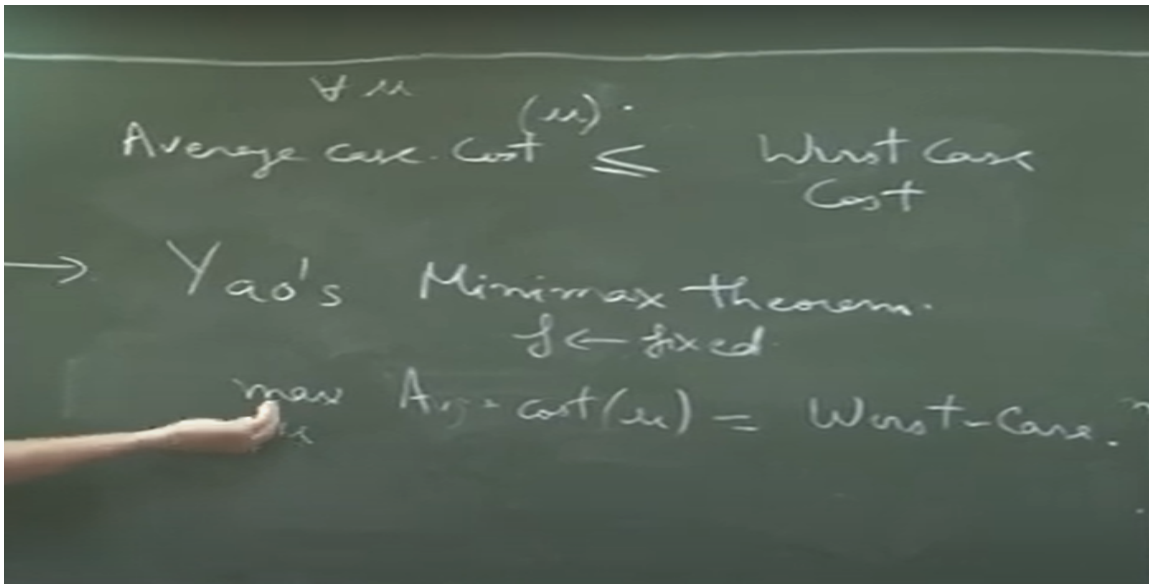 ∀ μ
Average case. Cost (μ). ≤ Worst Case
Cost
→ Yao's Minimax theorem.
f ← fixed.
max Avg. cost (μ) = Worst-Case.
μ